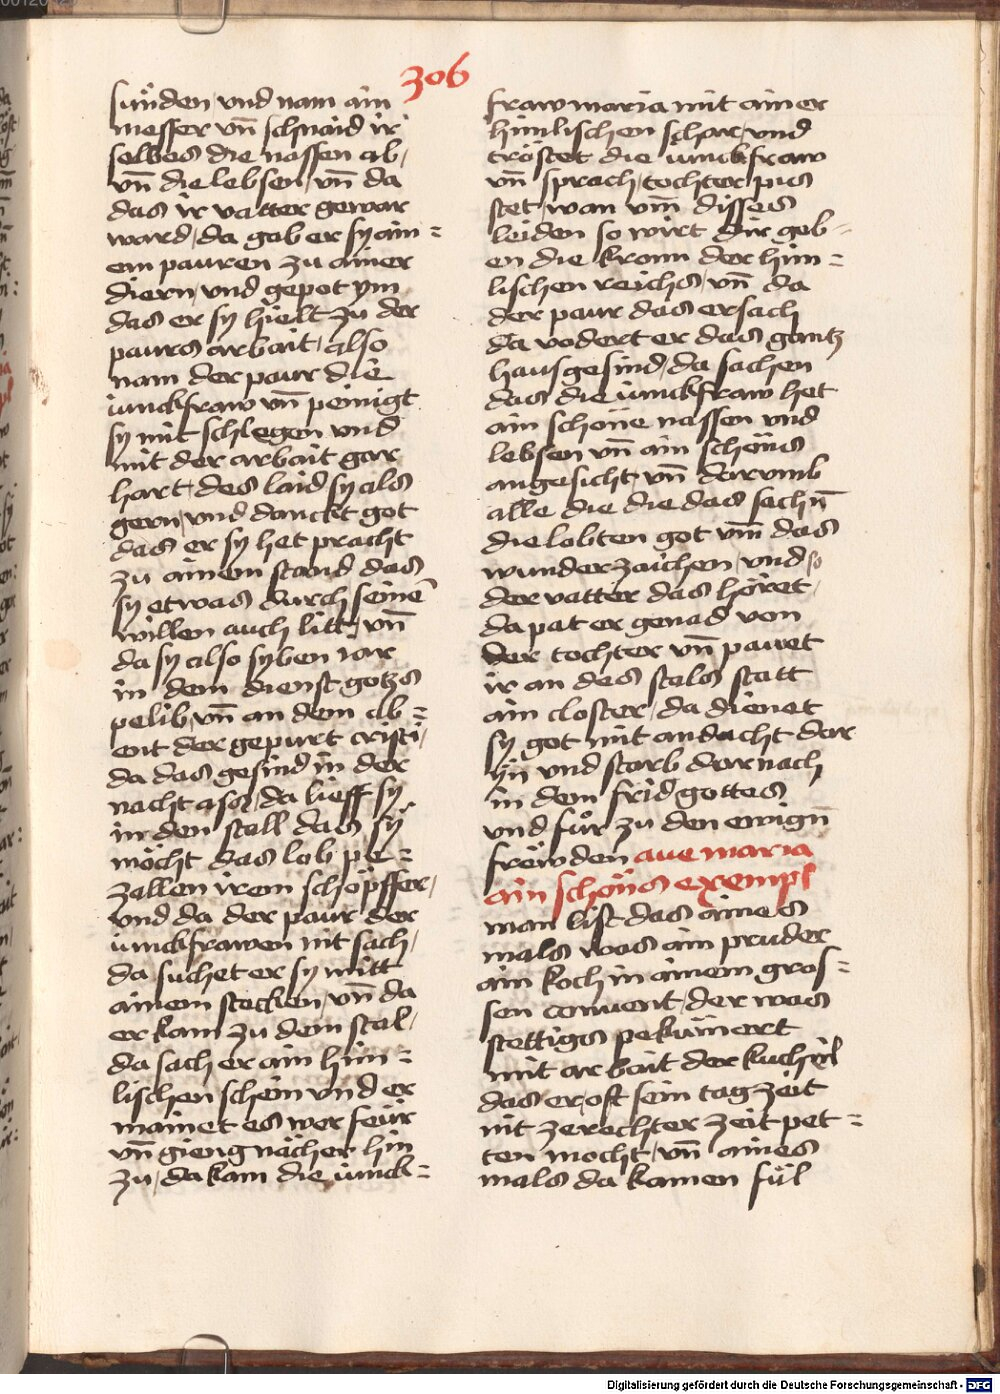 306
sünden vnd nam ain
messer vn̄ schnaid ir
selbes die nassen ab/
vn̄ die lebsen/ vn̄ da
das ir vatter gewar
ward/ da gab er sy ain=
em pauren zu ainer
diern/ vnd gepot ym
das er sy hielt zu der
paurs arbait/ also
nam der paur die
iunckfraw vn̄ peinigt
sy mit schlegen vnd
mit der arbait gar
hart/ des laid sy als
gern/ vnd danckt got
das er sy het pracht
zu ainem stand das
sy etwas durch seinē
willen auch litt/ vn̄
da sy also syben iar
in dem dienst gotzs
pelib/ vn̄ an dem ab=
ent der gepurt cristi/
da das gesind in der
nacht ass/ da lieff sy
in den stall das sy
möcht das lob pe=
zallen irem schöpffer/
vnd da der paur der
iunckfrawen nit sach/
da suchet er sy mitt
ainem stecken/ vn̄ da
er kam zu dem stal/
da sach er ain him=
lischen schein vnd er
mainet es wer feür
vn̄ gieng nächer hin
zu/ da kam die iunck=
fraw maria mit ainer
himlischen schar/ vnd
tröstet die iunckfraw
vn̄ sprach/ tochter pis
stet/ wan vm̄ disses
leiden so wirt dir geb=
en die kron der him=
lischen reichs/ vn̄ da
der paur das ersach
da vodert er das gantz
hausgesind/ da sachen
das die iunckfraw het
ain schöne nassen vnd
lebsen vn̄ ain schöns
angesicht/ vn̄ darumb
alle die die das sachn̄
die lobten got vm̄ das
wunderzaichen/ vnd so
der vatter das höret/
da pat er genad von
der tochter vn̄ pawet
ir an des stals statt
ain closter/ da dienet
sy got mit andacht dar
yn vnd starb darnach
in dem frid gottes
vnd für zu den ewign̄
fröwden aue maria
ain schöns exempl
man list das aines
mals was ain pruder
ain koch in ainem gros=
sen conuent/ der was
stettigs pekümert
mit arbait der kuchin
das er oft sein tagzeit
nit zerechter zeit pet=
ten mocht/ vn̄ aines
mals da kamen fül
Digitalisierung gefördert durch die Deutsche Forschungsgemeinschaft - DFG